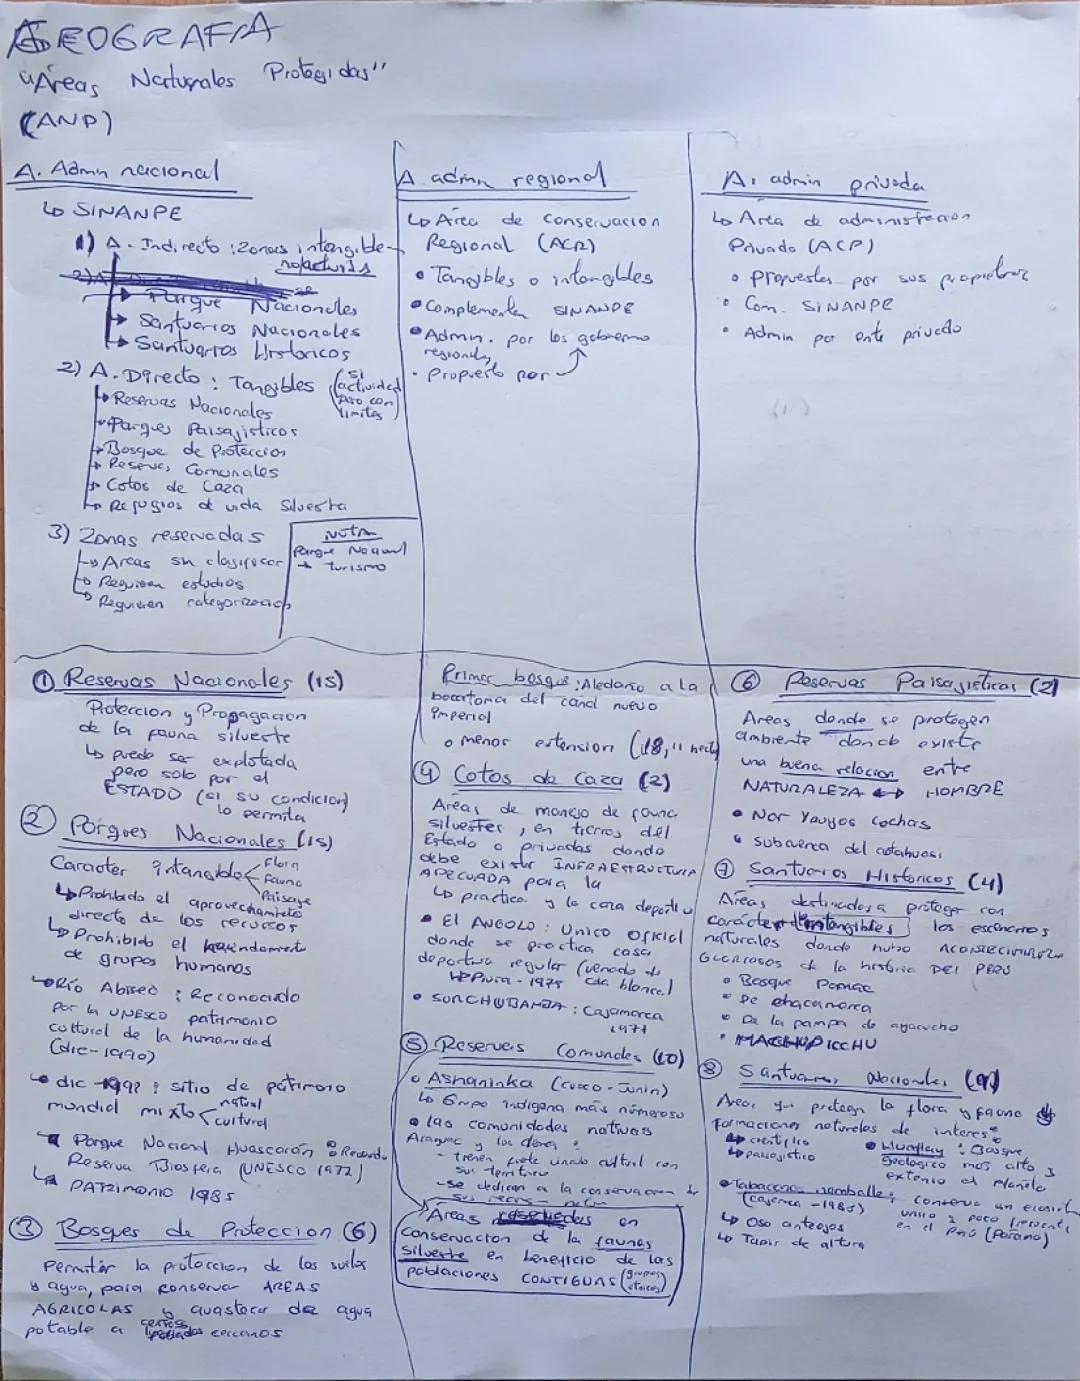 GEOGRAFIA
"Áreas Naturales Protegidas"
(ANP)
A. Admn nacional
↳ SINANPE
1) A. Indirecto : Zonas intangible
no facturis
→ Parque Nacionales
↳ Santuarios Nacionales
↳ Santuarios Historicos
2) A. Directo : Tangibles (si actividad
pero con limites)
↳ Reservas Nacionales
↳ Parques Paisajisticos
↳ Bosque de Proteccion
↳ Reservas Comunales
↳ Cotos de Caza
↳ Refugios de vida Silvestre
3) Zonas reservadas
↳ Areas sin clasificar
↳ Requieren estudios
↳ Requieren categorizacion
NOTA
Parque Nacional
→ turismo
A. admn regional
↳ Area de conservacion
Regional (ACR)
• Tangibles o intangibles
• Complementan SINANPE
• Admn. por los gobierno
regionales
• Propuesto por
A. admin privada
↳ Area de administracion
Privado (ACP)
• propuestas por sus propietarios
• Com. SINANPE
• Admin por ente privado
① Reservas Nacionales (15)
Proteccion y Propagacion
de la fauna silvestre
↳ puede ser explotada
pero solo por el
ESTADO (si su condicion
lo permita)
② Parques Nacionales (15)
Caracter intangible < Flora
Fauna
Paisaje
↳ Prohibido el aprovechamiento
directo de los recursos
↳ Prohibido el
de grupos humanos
↳ Río Abiseo : Reconocido
por la UNESCO patrimonio
cultural de la humanidad
(dic-1990)
• dic - 1992 : sitio de patrimonio
mundial mixto < natural
cultural
Parque Nacional Huascarán : Reconocido
Reserva Biosfera (UNESCO 1977)
↳ PATRIMONIO 1985
③ Bosques de Proteccion (6)
Permitir la proteccion de los suelos
y agua, para conservar AREAS
AGRICOLAS y avastecer de agua
potable a poblados cercanos
Primer bosque : Aledaño a la
bocatoma del canal nuevo
imperial
• menor extension (18,11 hect)
④ Cotos de Caza (2)
Areas de manejo de fauna
silvestres, en tierras del
Estado o privadas donde
debe existir INFRAESTRUCTURA
ADECUADA para la
↳ practica y la caza deportiva
• El ANGOLO : Unico oficial
donde se practica caza
deportiva regular (venado de
cola blanca)
↳ Piura - 1975
• SUNCHUBAMBA : Cajamarca
1977
⑤ Reservas Comunales (10)
• Ashaninka (cusco - Junin)
↳ Grupo indigena más numeroso
• las comunidades nativas
y las demas :
- tienen fuerte vinculo cultural con
sus territorio
- se dedican a la conservacion de
sus recurs
Areas reservadas en
conservacion de la faunas
silvestre en beneficio de las
poblaciones CONTIGUAS (grupos
etnicos)
⑥ Reservas Paisajisticas (2)
Areas donde se protegen
ambiente donde existe
una buena relacion entre
NATURALEZA ↔ HOMBRE
• Nor Yauyos cochas
• Subcuenca del cotahuasi
⑦ Santuarios Historicos (4)
Areas destinadas a proteger con
carácter intangibles los escenarios
naturales donde hubo ACONTECIMIENTOS
GLORIOSOS de la historia DEL PERU
• Bosque Pomac
• De chacamarca
• De la pampa de ayacucho
• MACHUPICCHU
⑧ Santuarios Nacionales (9)
Areas que protegen la flora y fauna y
formaciones naturales de interes :
↳ cientifico
↳ paisajistico
• Huayllay : Bosque
geologico mas alto y
extenso del planeta
• Tabaconas namballe : conserva un ecosist
(cajamarca - 1988)
unico y poco frecuente
en el Perú (Páramo)
↳ Oso anteojos
↳ Tapir de altura